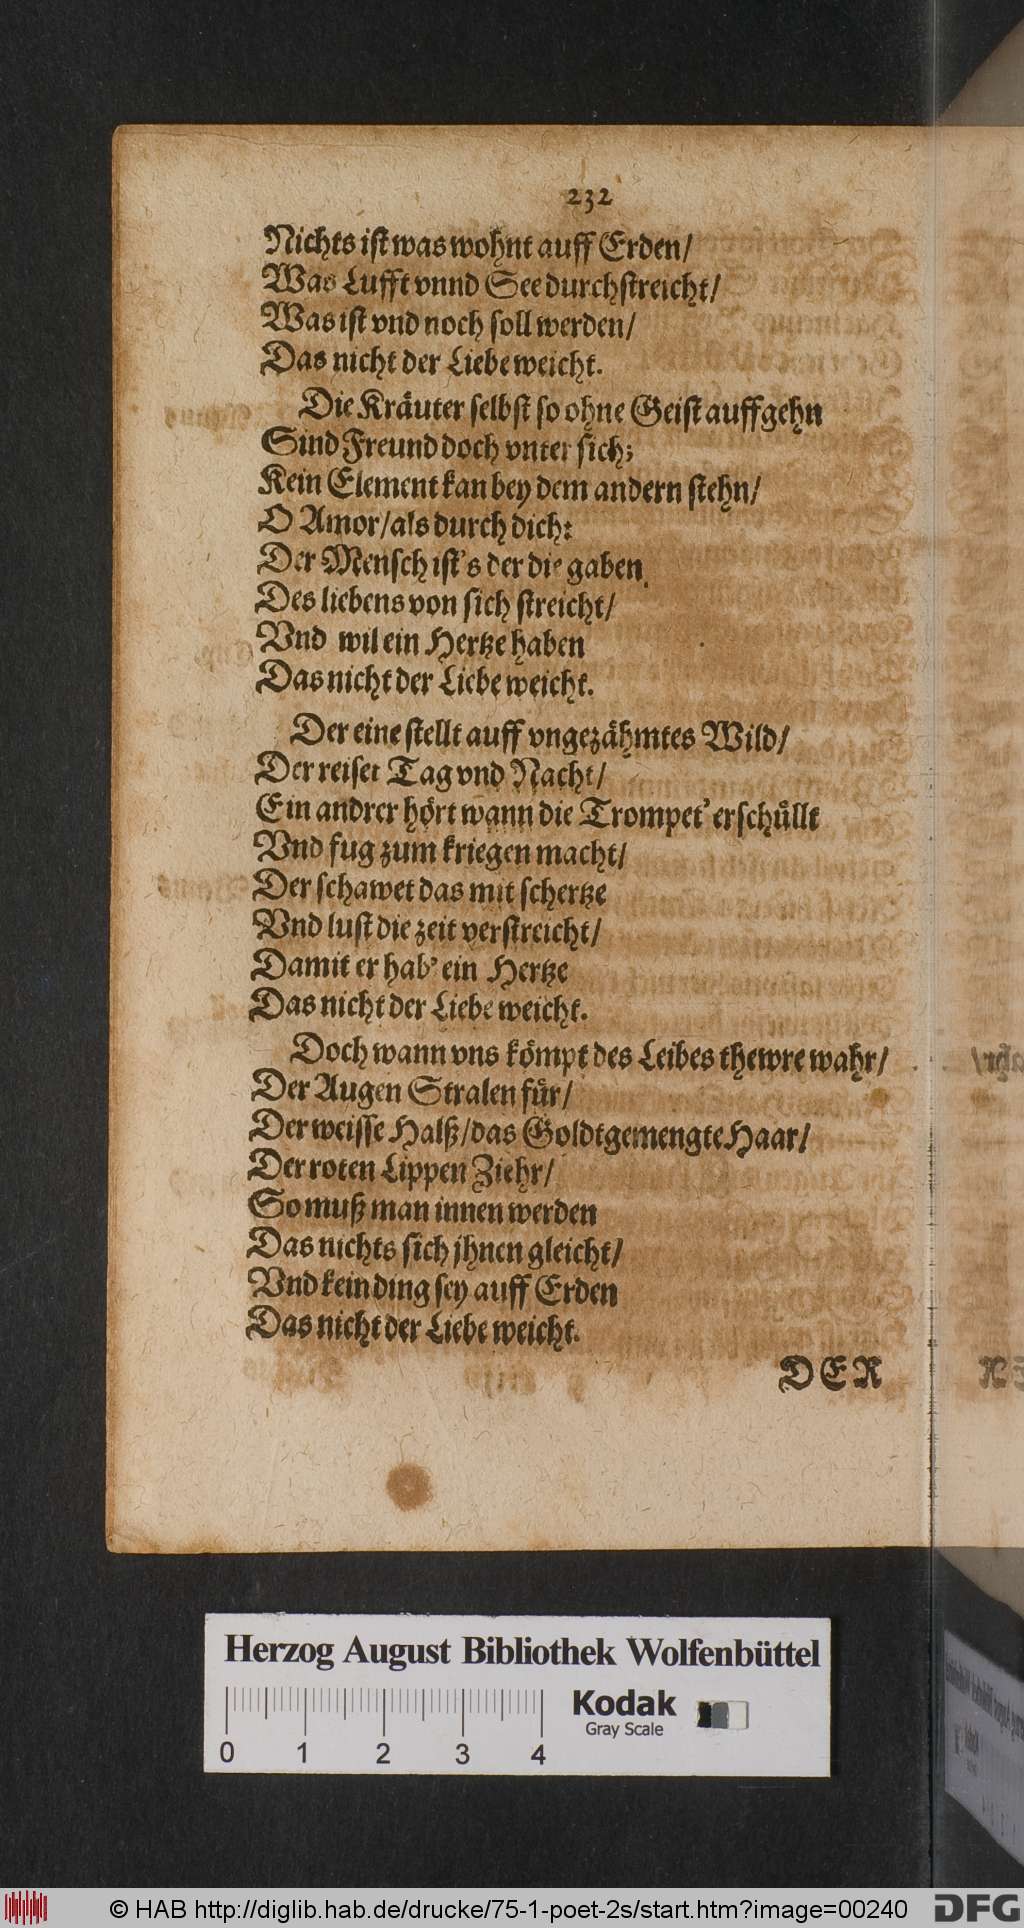 232
Nichts ist was wohnt auff Erden/
Was Lufft vnnd See durchstreicht/
Was ist vnd noch soll werden/
Das nicht der Liebe weicht.
Die Kräuter selbst so ohne Geist auffgehn
Sind Freund doch vnter sich;
Kein Element kan bey dem andern stehn/
O Amor/als durch dich:
Der Mensch ist's der die gaben
Des liebens von sich streicht/
Vnd wil ein Hertze haben
Das nicht der Liebe weicht.
Der eine stellt auff vngezähmtes Wild/
Der reiset Tag vnd Nacht/
Ein andrer hört wann die Trompet' erschüllt
Vnd fug zum kriegen macht/
Der schawet das mit schertze
Vnd lust die zeit verstreicht/
Damit er hab' ein Hertze
Das nicht der Liebe weicht.
Doch wann vns kömpt des Leibes thewre wahr/
Der Augen Stralen für/
Der weisse Halß/das Goldtgemengte Haar/
Der roten Lippen Ziehr/
So muß man innen werden
Das nichts sich jhnen gleicht/
Vnd kein ding sey auff Erden
Das nicht der Liebe weicht.
DER
Herzog August Bibliothek Wolfenbüttel
Kodak
Gray Scale
0 1 2 3 4
© HAB http://diglib.hab.de/drucke/75-1-poet-2s/start.htm?image=00240
DFG